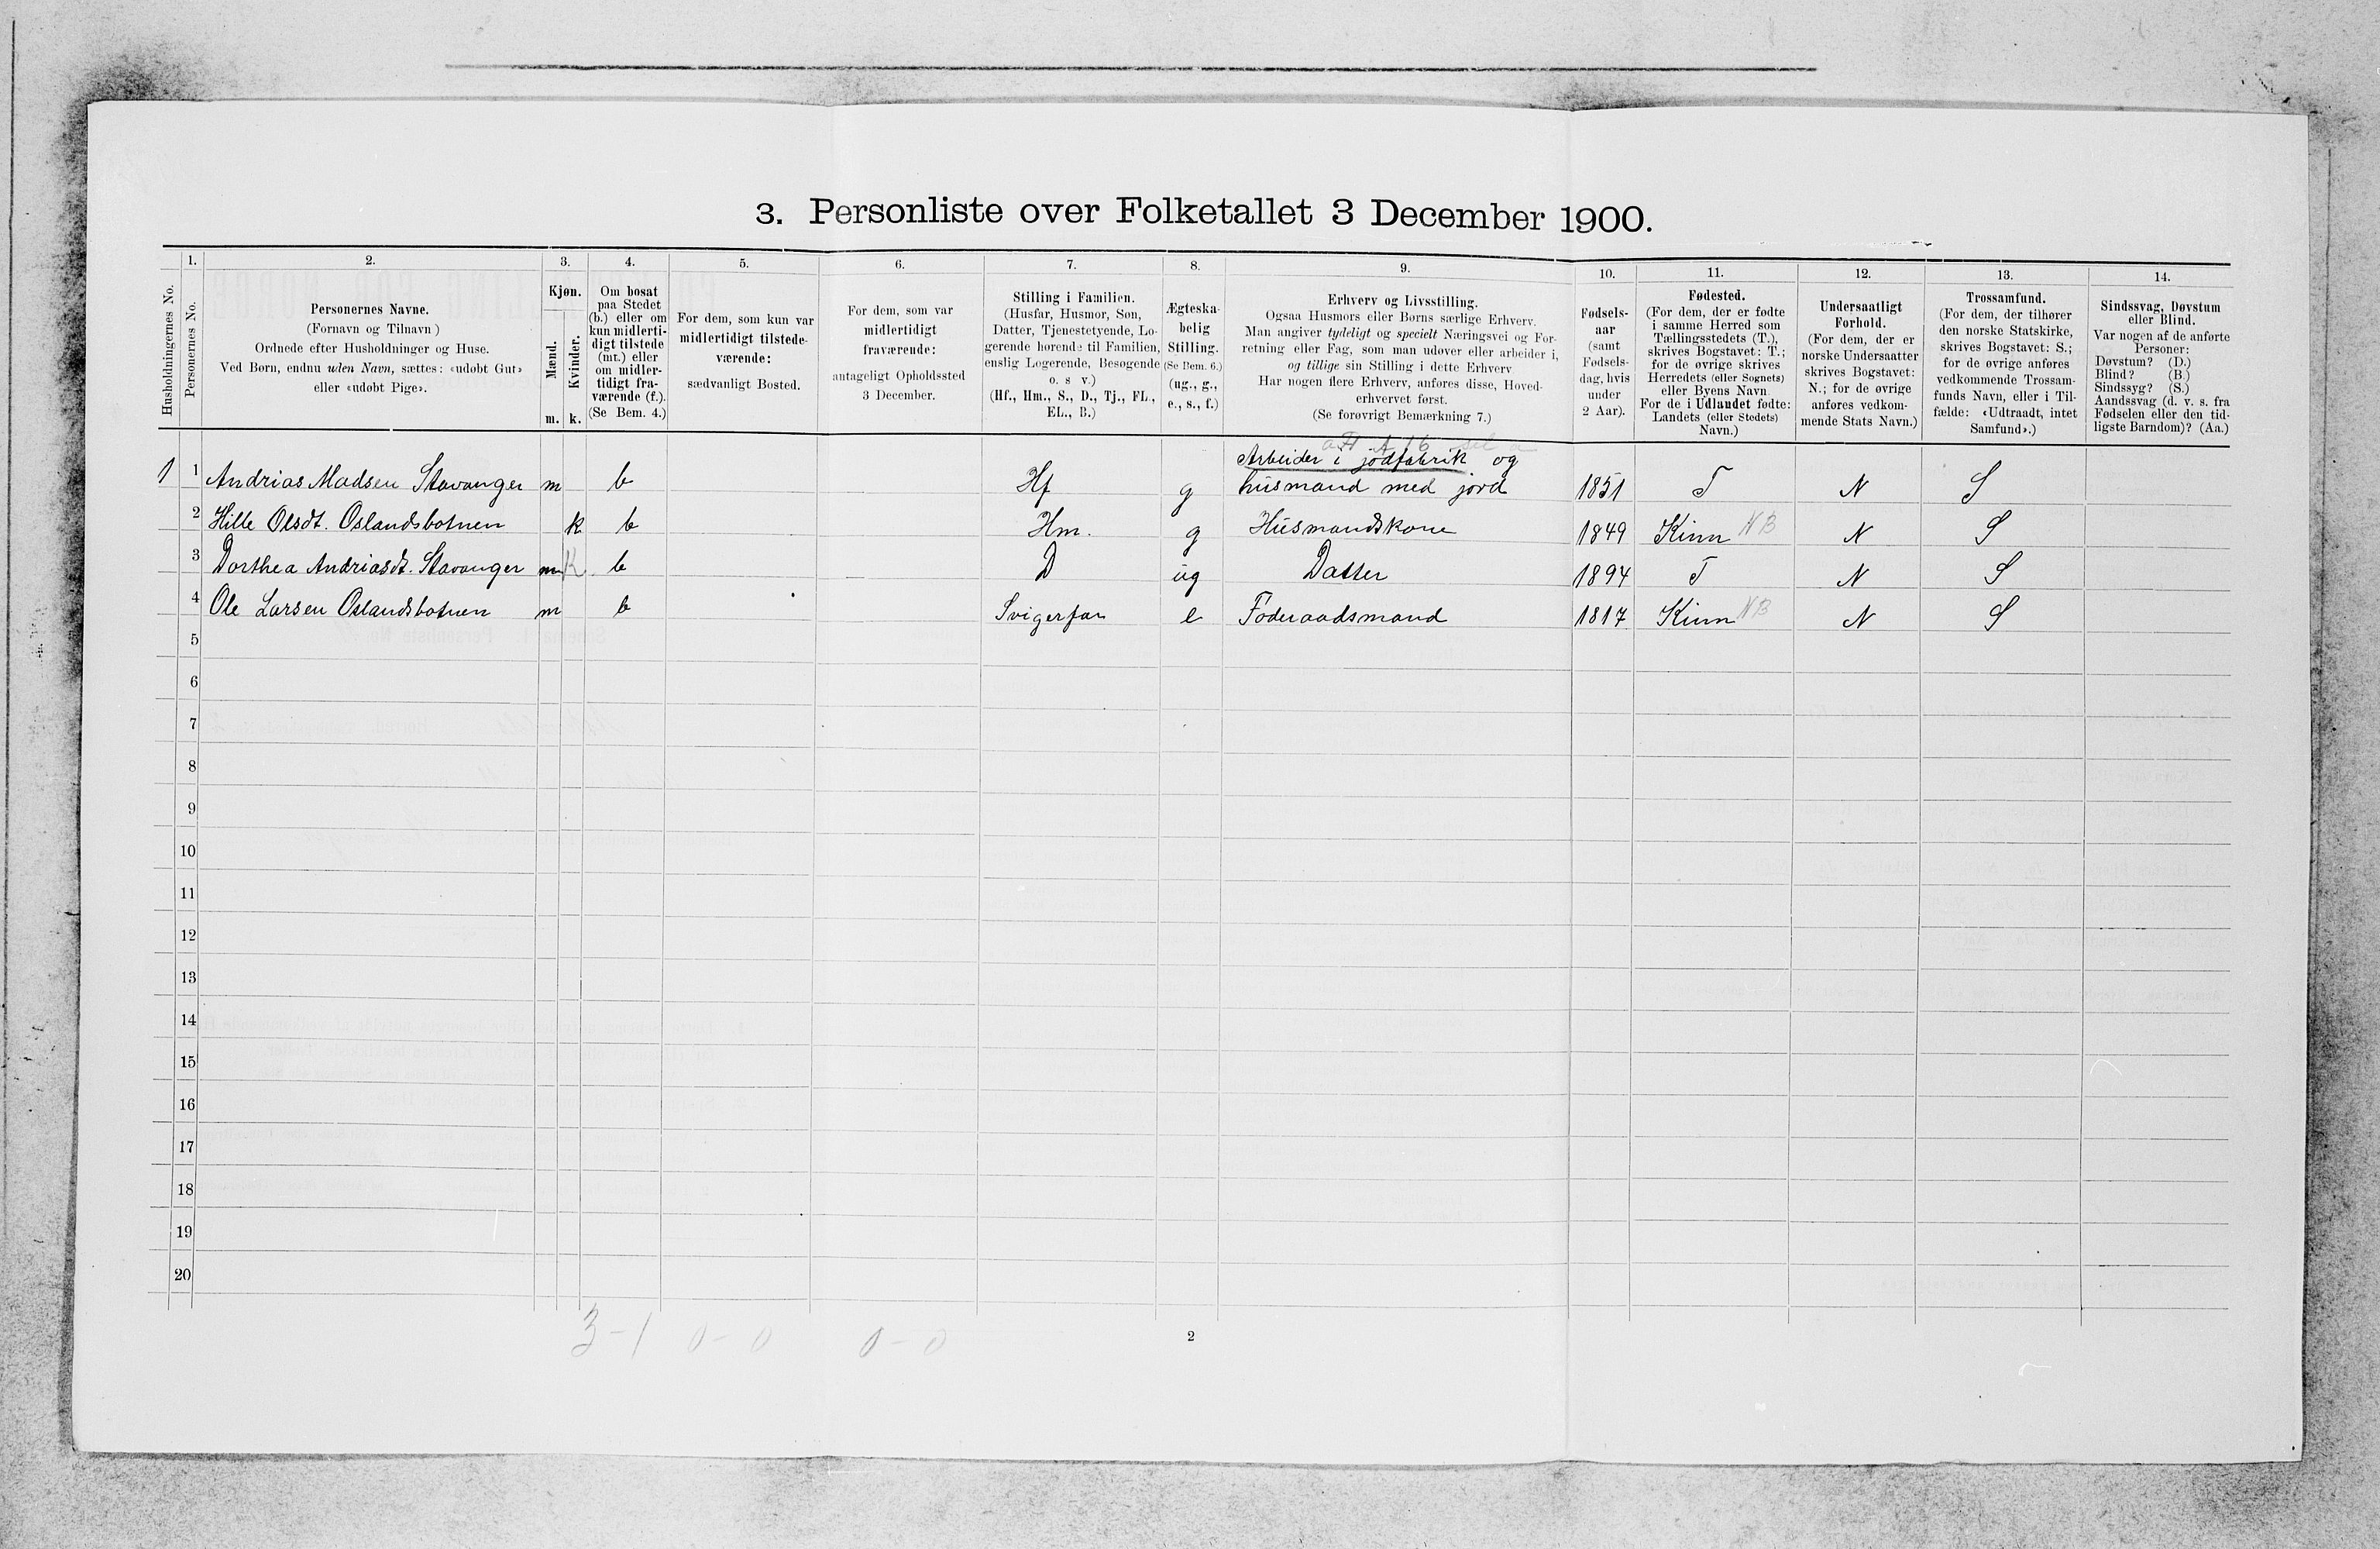 3. Personliste over Folketallet 3 December 1900.
Husholdningernes No.
1.
Personernes No.
2.
Personernes Navne.
(Fornavn og Tilnavn)
Ordnede efter Husholdninger og Huse.
Ved Børn, endnu uden Navn, sættes: «udøbt Gut»
eller «udøbt Pige».
3.
Kjøn.
Mænd.
Kvinder.
m. k.
4.
Om bosat
paa Stedet
(b.) eller om
kun midlerti-
digt tilstede
(mt.) eller
om midler-
tidigt fra-
værende (f.).
(Se Bem. 4.)
5.
For dem, som kun var
midlertidigt tilstede-
værende:
sædvanligt Bosted.
6.
For dem, som var
midlertidigt
fraværende:
antageligt Opholdssted
3 December.
7.
Stilling i Familien.
(Husfar, Husmor, Søn,
Datter, Tjenestetyende, Lo-
gerende hørende til Familien,
enslig Logerende, Besøgende
o. s v.)
(Hf., Hm., S., D., Tj., FL.,
EL., B.)
8.
Ægteska-
belig
Stilling.
(Se Bem. 6.)
(ug., g.,
e., s., f.)
9.
Erhverv og Livsstilling.
Ogsaa Husmors eller Børns særlige Erhverv.
Man angiver tydeligt og specielt Næringsvei og For-
retning eller Fag, som man udøver eller arbeider i,
og tillige sin Stilling i dette Erhverv
Har nogen flere Erhverv, anføres disse, Hoved-
erhvervet først.
(Se forøvrigt Bemærkning 7.)
10.
Fødsels-
aar
(samt
Fødsels-
dag, hvis
under
2 Aar).
11.
Fødested.
(For dem, der er fødte
i samme Herred som
Tællingsstedets (T.),
skrives Bogstavet: T.;
for de øvrige skrives
Herredets (eller Sognets)
eller Byens Navn
For de i Udlandet fødte:
Landets (eller Stedets)
Navn.)
12.
Undersaatligt
Forhold.
(For dem, der er
norske Undersaatter
skrives Bogstavet:
N.; for de øvrige
anføres vedkom-
mende Stats Navn.)
13.
Trossamfund.
(For dem, der tilhører
den norske Statskirke,
skrives Bogstavet: S.;
for de øvrige anføres
vedkommende Trossam-
funds Navn, eller i Til-
fælde: «Udtraadt, intet
Samfund».)
14.
Sindssvag, Døvstum
eller Blind.
Var nogen af de anførte
Personer:
Døvstum? (D.)
Blind? (B.)
Sindssyg? (S.)
Aandssvag (d. v. s. fra
Fødselen eller den tid-
ligste Barndom)? (Aa.)
1 1 Andrias Madsen Stavanger m b Hf g Arbeider i jodfabrik og
husmand med jord 1851 T N S
2 Hille Olsdt. Oslandsbotnen k b Hm. g Husmandskone 1849 Kinn NB N S
3 Dorthea Andriasdt. Stavanger m K b D ug Datter 1894 T N S
4 Ole Larsen Oslandsbotnen m b Svigerfar e Føderaadsmand 1817 Kinn NB N S
5
6
7
8
9
10
11
12
13
14
15
16
17
18
19
20
3-1 0-0 0-0
2